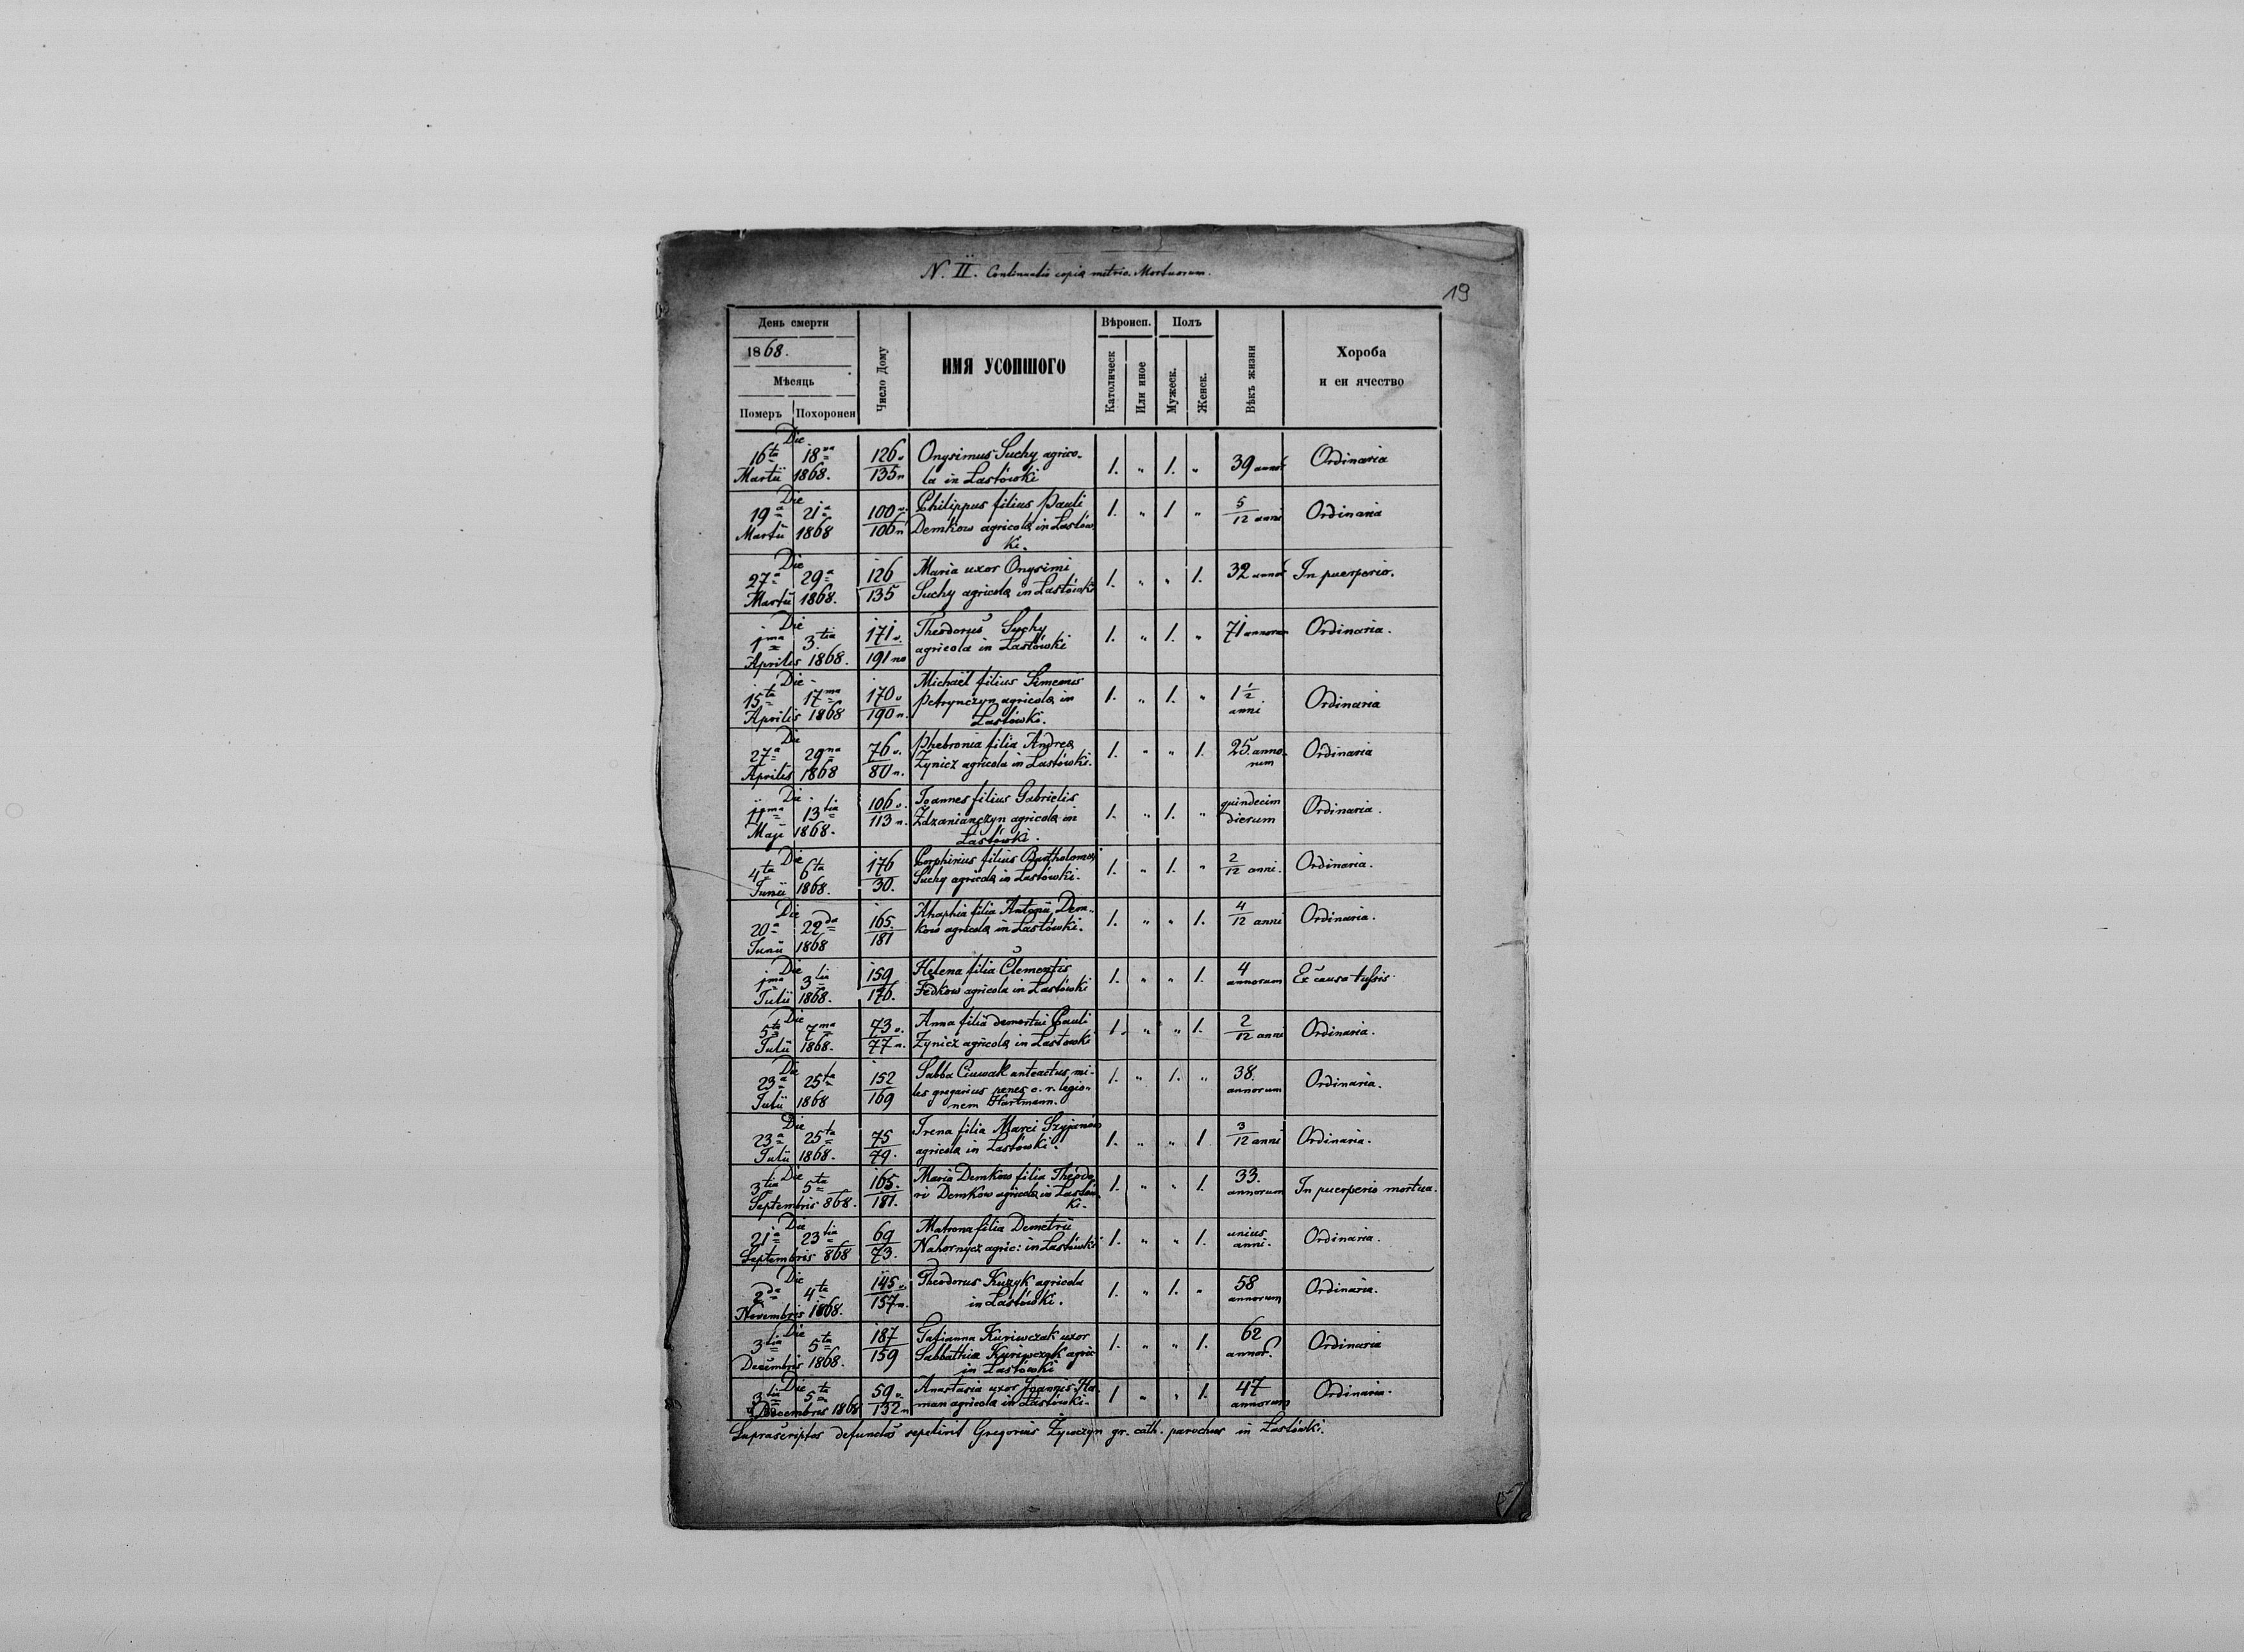 N. II. Continuatio copiæ metric. Mortuorum.
19
День смерти
1868.
Мѣсяць
Померъ Похоронен
Число Дому
ИМЯ УСОПШОГО
Вѣроисп.
Католическ
Или иное
Полъ
Мужеск.
Женск.
Вѣкъ жизни
Хороба
и еи ячество
Die
16ta 18va 126 v Onysimus Suchy agrico-
Martii 1868. 135 n la in Łastówki 1. " 1. " 39 annor Ordinaria
Die
19a 21a 100 v. Philippus filius Pauli 1. " 1 " 5/12 anni Ordinaria
Martii 1868 106 n Demkow agricolæ in Łastów
ki.
Die
27a 29a 126 Maria uxor Onysimi 1. " " 1. 32 annor In puerperio.
Martii 1868. 135 Suchy agricolæ in Łastówki
Die
1ma 3tia 171 v. Theodorus Suchy 1. " 1. " 71 annorum Ordinaria.
Aprilis 1868. 191 no agricola in Łastówki
Die
15ta 17ma 170 v Michaël filius Simeonis 1. " 1. " 1 1/2 Ordinaria
Aprilis 1868 190 n. Petrynczyn agricolæ in anni
Łastówki.
Die
27a 29na 76 v. Phebronia filia Andreæ 1. " " 1. 25. anno- Ordinaria
Aprilis 1868 80 n. Zynicz agricola in Łastówki. rum
Die
11ma 13tia 106 v. Joannes filius Gabrielis 1. " 1. " quindecim Ordinaria.
Maji 1868. 113 n. Zdzanianczyn agricolæ in dierum
Łastówki.
Die
4ta 6ta 176 Porphirius filius Bartholomæi 1. " 1. " 2/12 anni. Ordinaria.
Junii 1868. 30. Suchy agricolæ in Łastówki.
Die
20a 22da 165. Ahaphia filia Antonii Dem- 1. " " 1. 4/12 anni Ordinaria.
Junii 1868 181 kow agricolæ in Łastówki.
Die
1ma 3tia 159 Helena filia Clementis 1. " " 1. 4 Ex causa tussis
Julii 1868. 176. Fedkow agricola in Łastówki annorum
Die
5ta 7ma 73 v. Anna filia demortui Pauli 1. " " 1. 2/12 anni Ordinaria.
Julii 1868. 77 n. Zynicz agricolæ in Łastowki
Die
23a 25ta 152 Sabba Ciuwak anteactus mi- 1. " 1. " 38. Ordinaria.
Julii 1868 169 les gregarius penes c. r. legio- annorum
nem Hartmann.
Die
23a 25ta 75 Irena filia Marci 1. " " 1 3/12 anni Ordinaria.
Julii 1868. 79. agricolæ in Łastówki.
Die
3tia 5ta 165. Maria Demkow filia Theodo- 1. " " 1. 33. In puerperio mortua.
Septembris 868. 181. ri Demkow agricolæ in Łastów annorum
ki.
Die
21a 23tia 69 Matrona filia Demetrii 1. " " 1. unius Ordinaria.
Septembris 868 73. Nahornycz agric: in Łastówki anni.
Die
2da 4ta 145 v. Theodorus Kuzyk agricola 1. " 1. " 58 Ordinaria.
Novembris 1868. 157 n. in Łastówki. annorum
Die
3tia 5ta 187 Tatianna Kuriwczak uxor 1. " " 1. 62 Ordinaria
Decembris 1868. 159 Sabbathiæ Kuriwczak agric annor.
in Łastówki
Die
3tia 5ta 59 v. Anastasia uxor Joannis Ha- 1 " " 1. 47 Ordinaria.
Decembris 1868 132 n man agricolæ in Łastówki. annorum
Suprascriptos defunctos sepelivit Gregorius Żywczyn gr. cath. parochus in Łastówki.